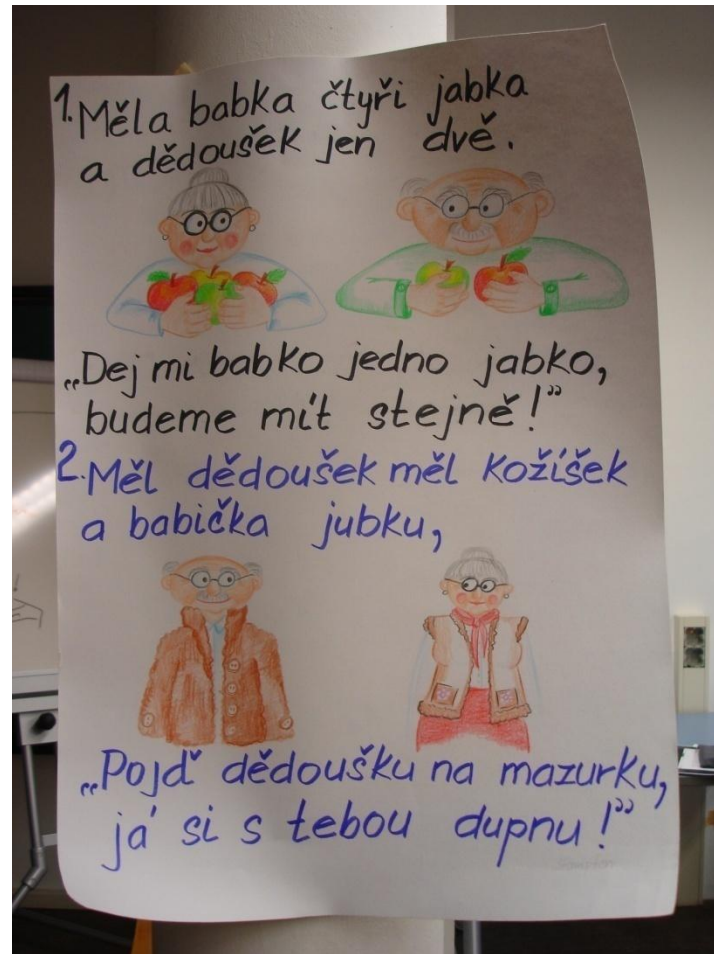 1. Měla babka čtyři jabka
a dědoušek jen dvě.
„Dej mi babko jedno jabko,
budeme mít stejně!”
2. Měl dědoušek měl kožíšek
a babička jubku,
„Pojď dědoušku na mazurku,
já si s tebou dupnu!”